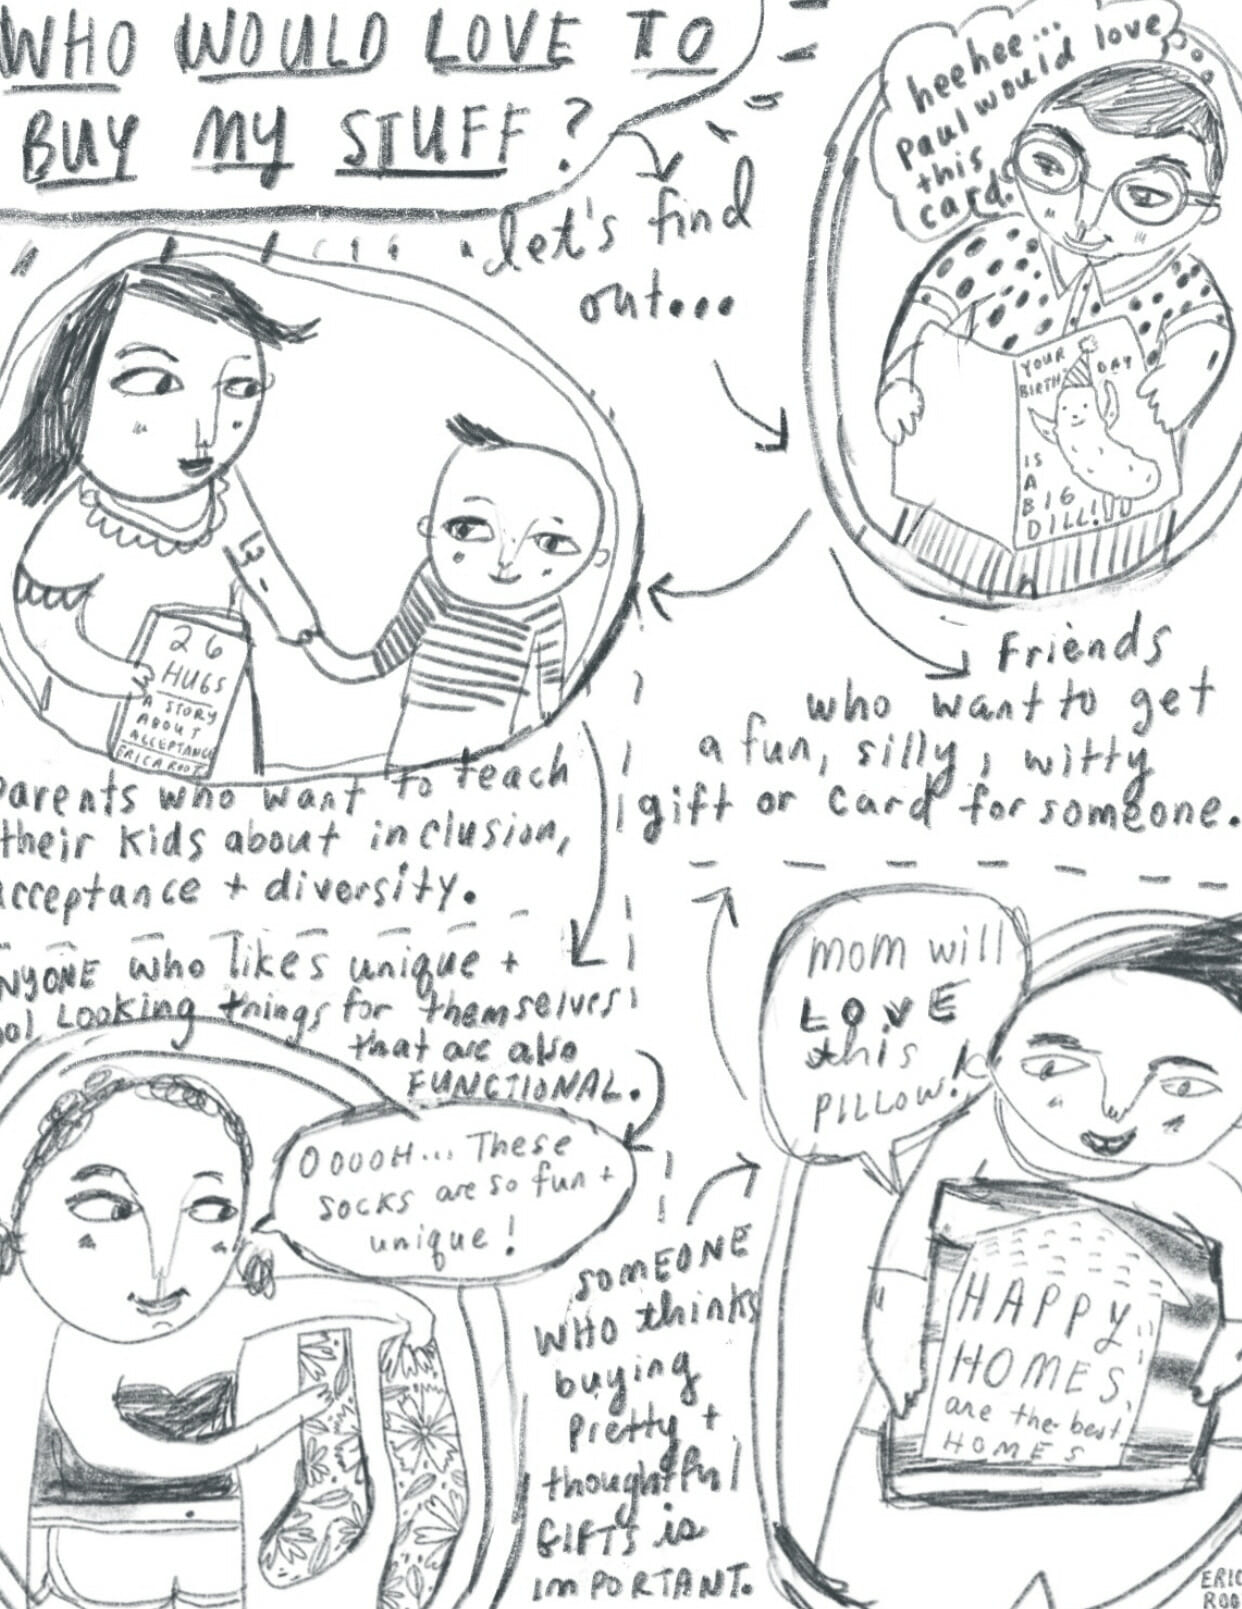 WHO WOULD LOVE TO
BUY MY STUFF?
let's find
out...
heehee...
paul would love
this
card.
YOUR
BIRTH DAY
IS
A
BIG
DILL!
Friends
who want to get
a fun, silly, witty
gift or card for someone.
26
HUGS
A STORY
ABOUT
ACCEPTANCE
ERICA ROOT
parents who want to teach
their kids about inclusion,
acceptance + diversity.
ANYONE who likes unique +
cool Looking things for themselves
that are also
FUNCTIONAL.
OOOOH... These
socks are so fun +
unique!
SOMEONE
WHO thinks
buying
pretty +
thoughtful
GIFTS is
imPORTANT.
mom will
LOVE
this
PILLOW!
HAPPY
HOMES,
are the best
HOMES
ERIC
ROO